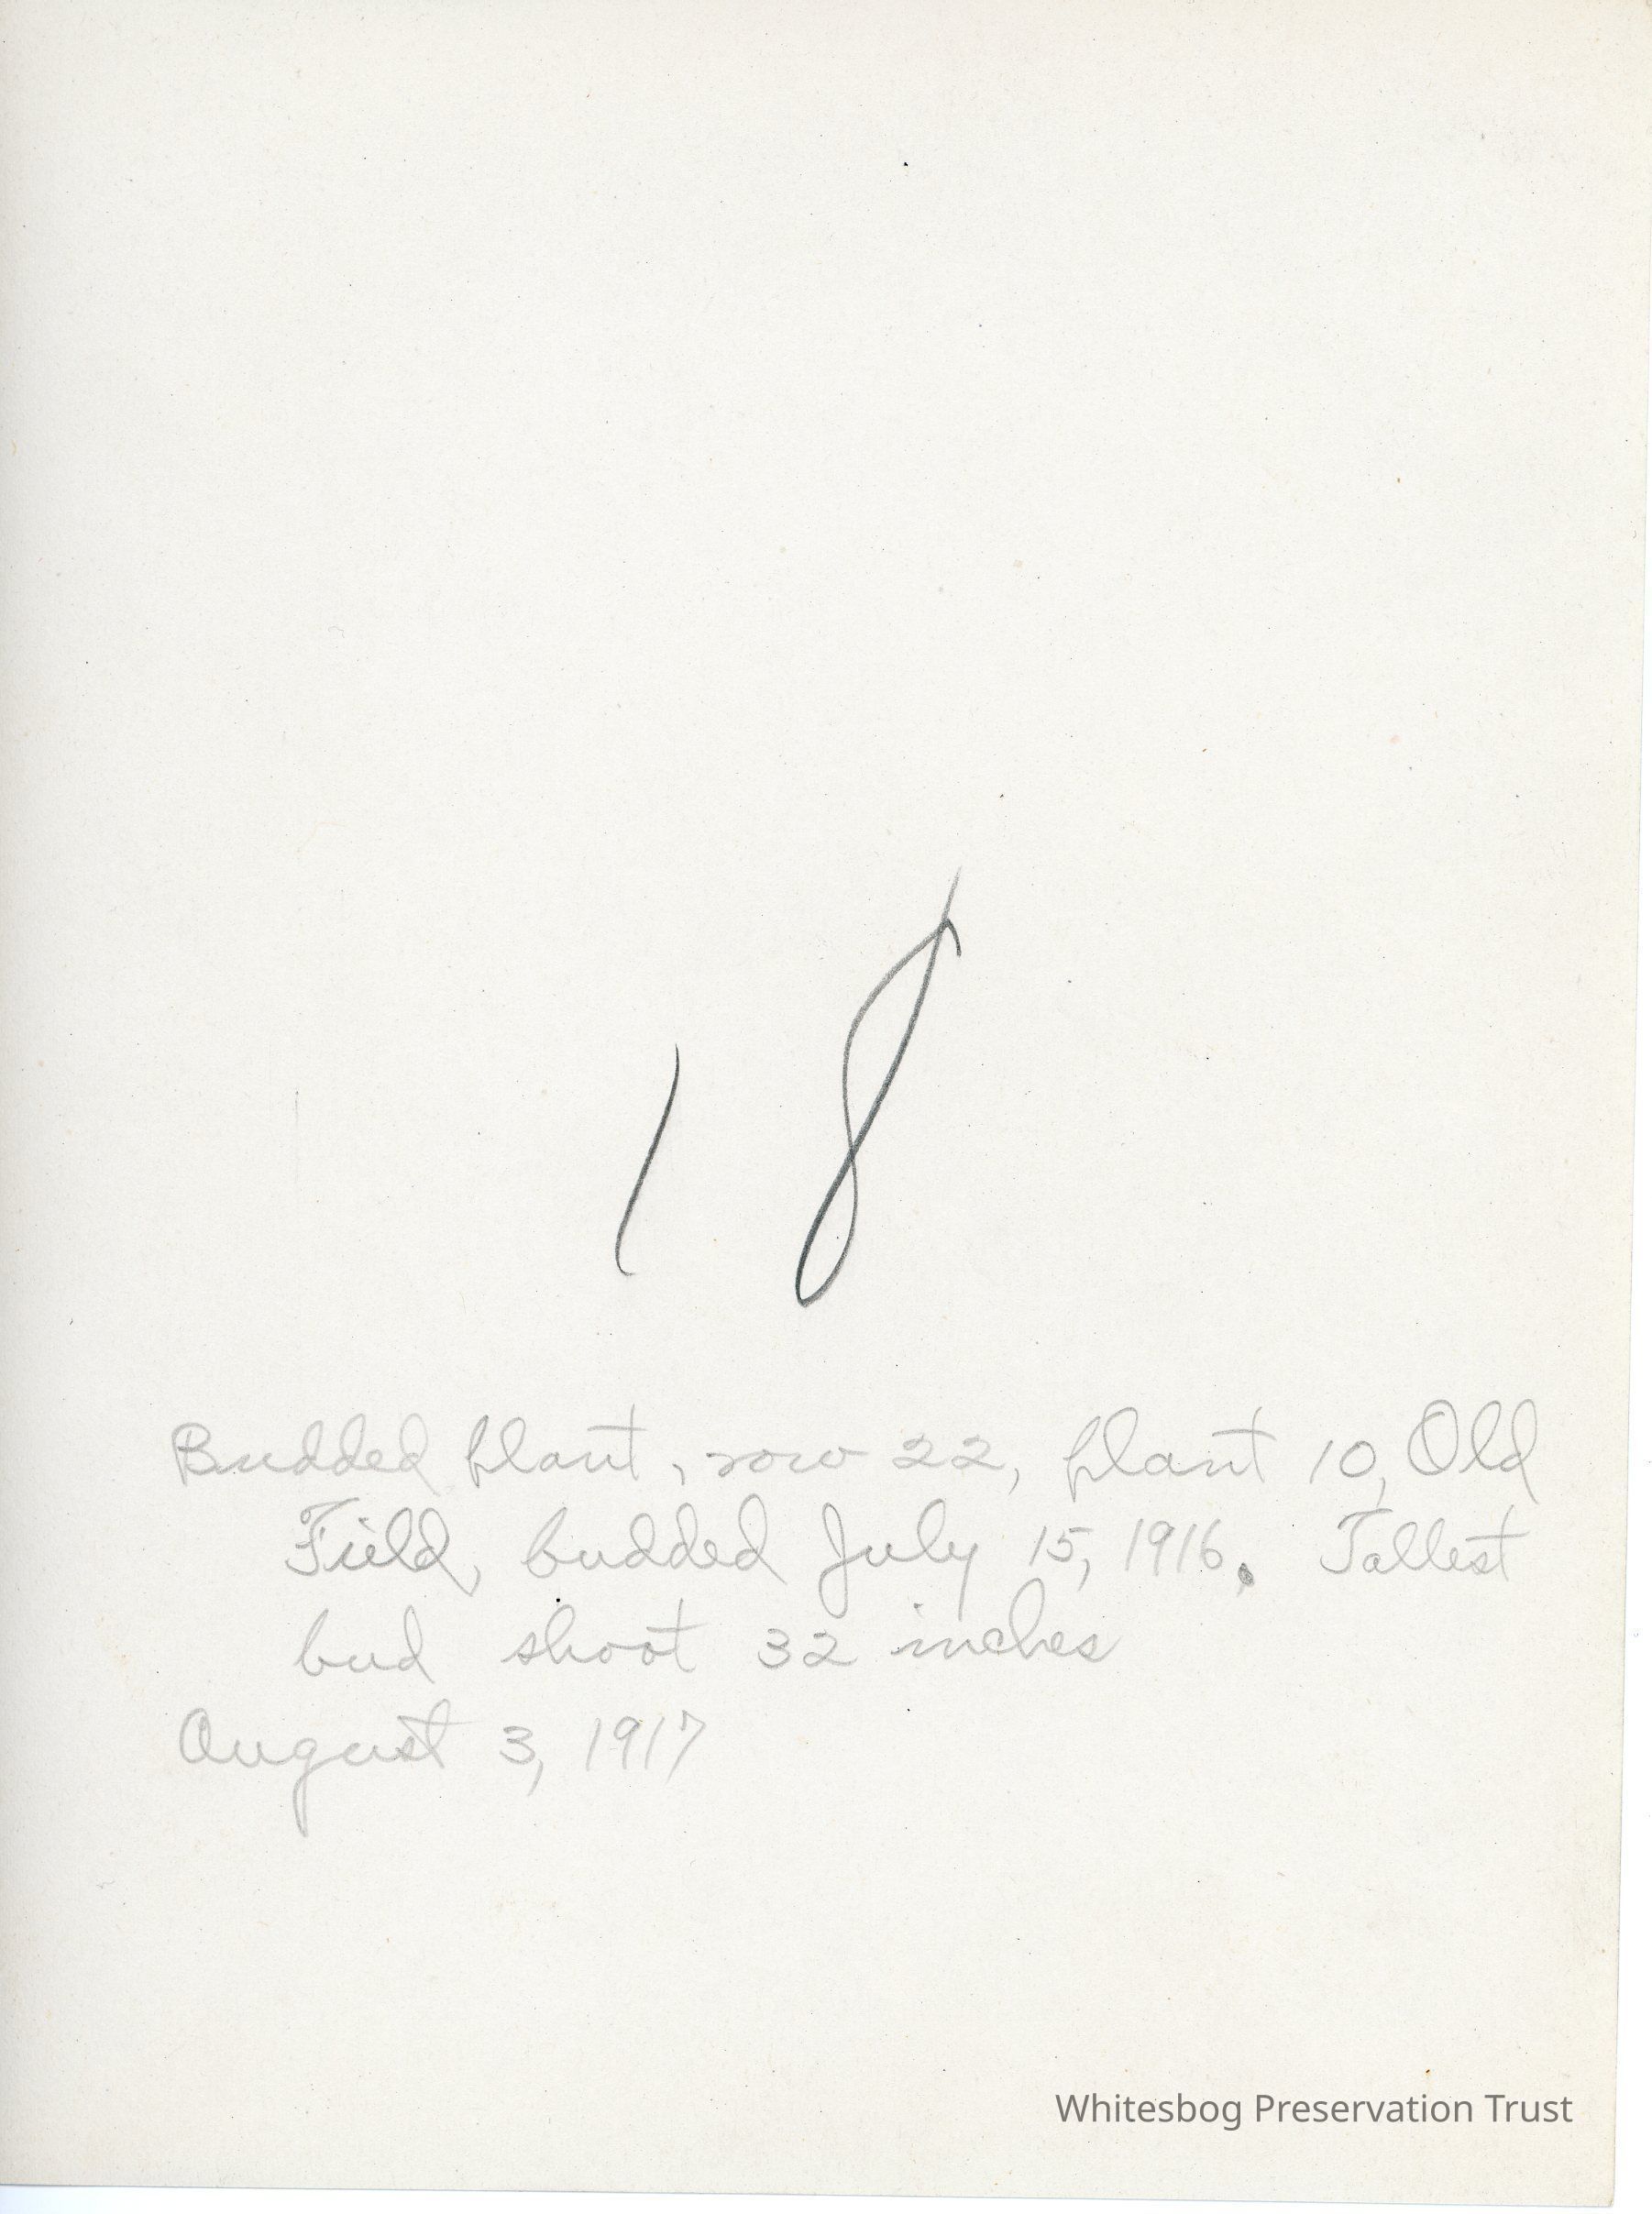 18
Budded plant, row 22, plant 10, Old
Field, budded July 15, 1916. Tallest
bud shoot 32 inches
August 3, 1917
Whitesbog Preservation Trust